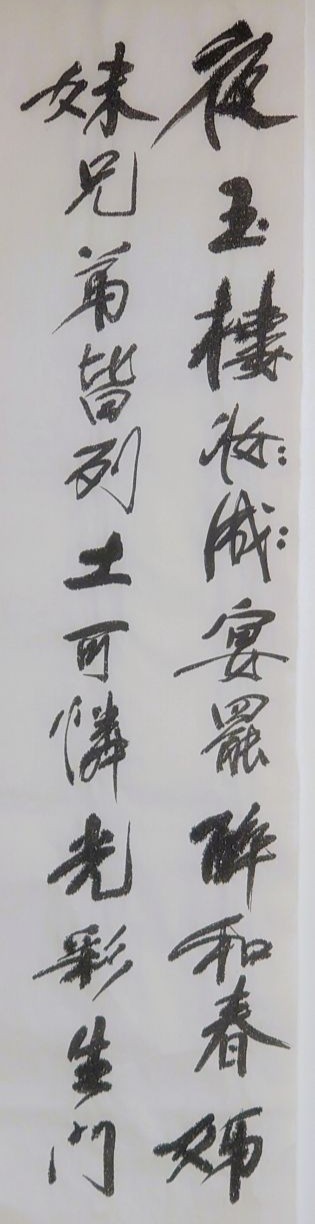 夜玉樓妝:成:宴罷醉和春姊
妹兄弟皆列土可憐光彩生門